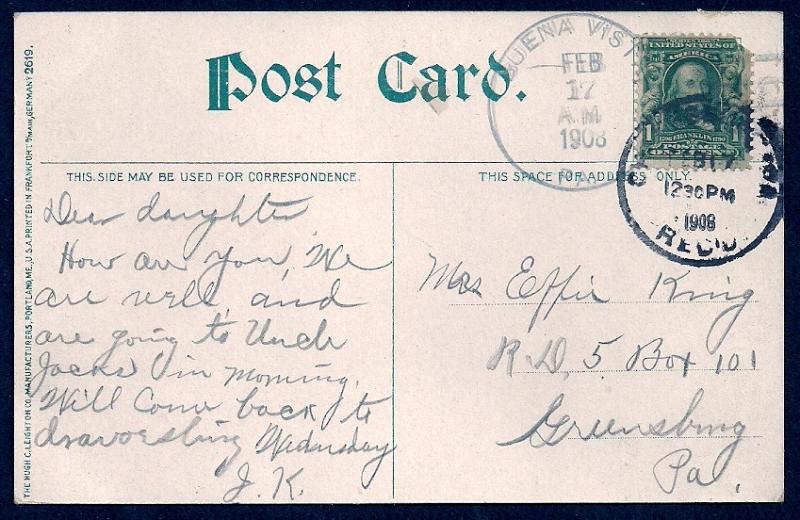 Post Card.
BUENA VIST
FEB
17
A.M
1908
PA.
SERIES 1902
UNITED STATES OF
AMERICA
1706 FRANKLIN 1790
1 POSTAGE 1
ONE CENT
B 17
12 30 PM
1908
REC'D.
THIS SIDE MAY BE USED FOR CORRESPONDENCE.
THIS SPACE FOR ADDRESS ONLY.
Dear daughter
How are you, We
are well, and
are going to Uncle
Jacks in morning.
Will Come back to
dravosburg Wednesday
J. K.
Mrs Effie King
R.D, 5 Box 101
Greensburg
Pa,
THE HUGH C. LEIGHTON CO., MANUFACTURERS, PORTLAND, ME., U.S.A. PRINTED IN FRANKFORT O/MAIN, GERMANY 2619.